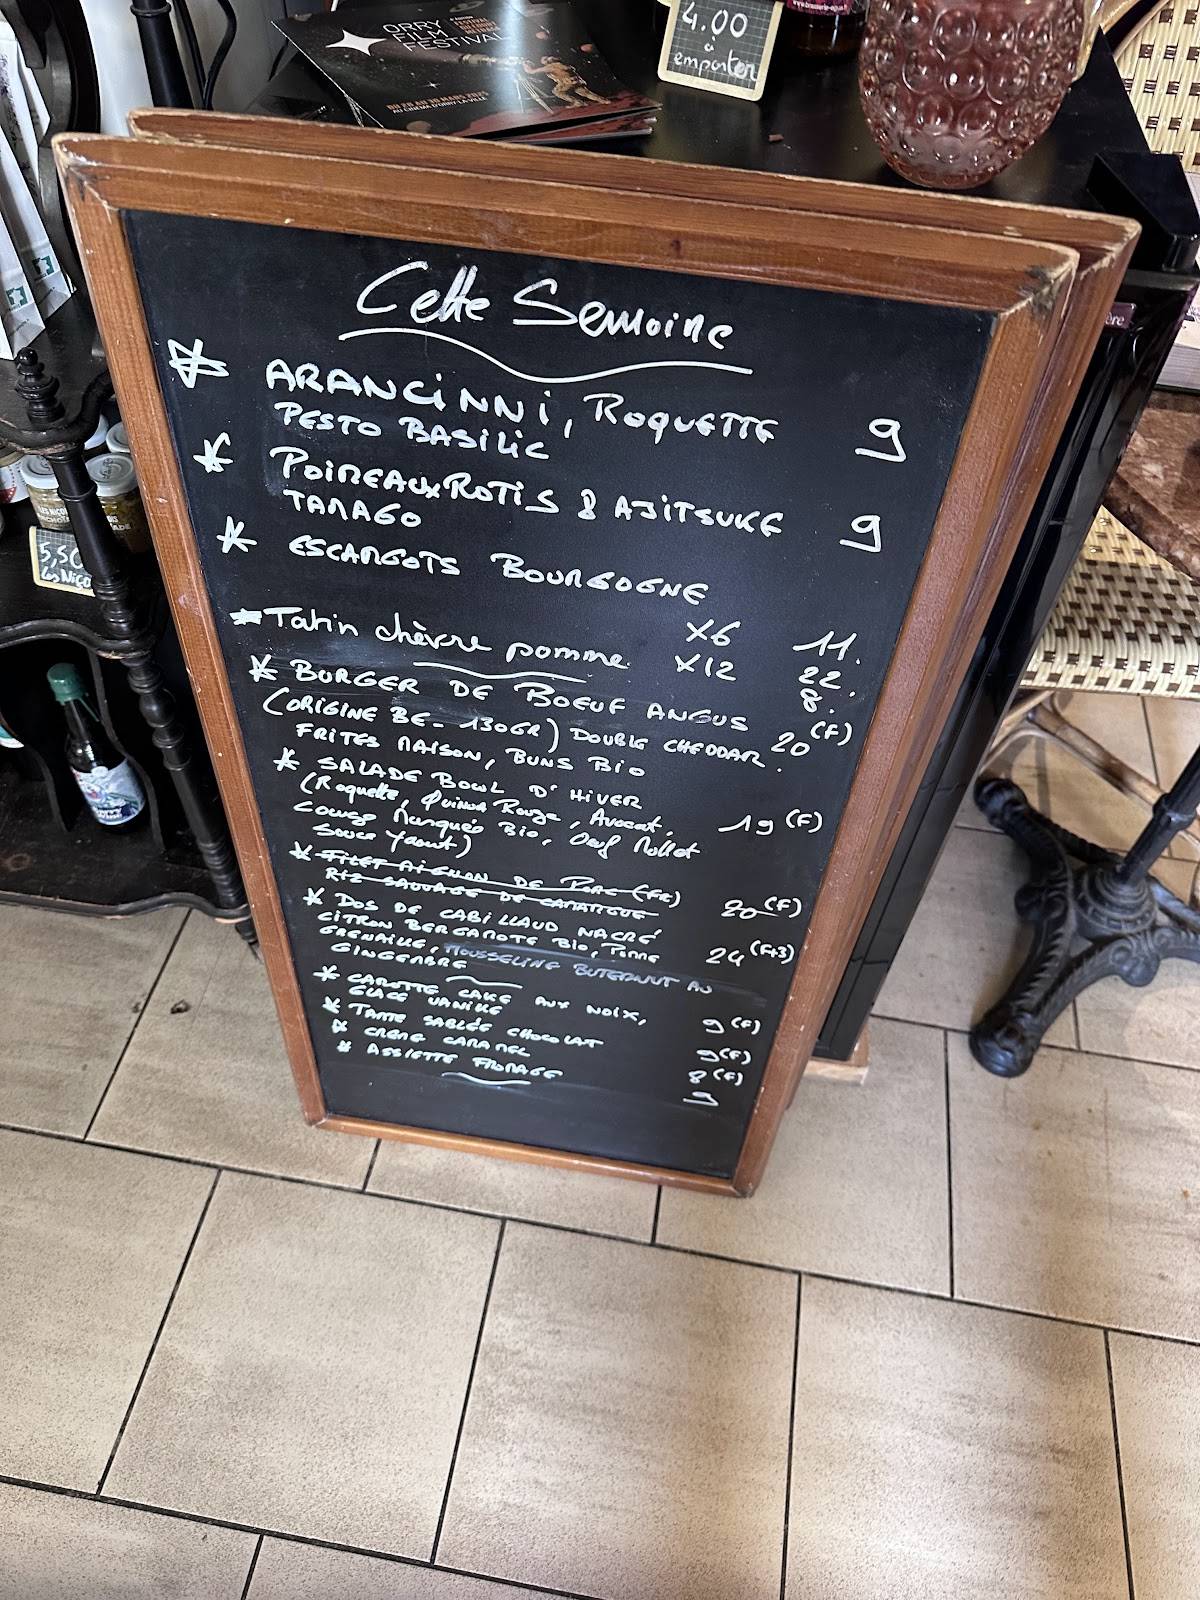 ORRY
FILM
FESTIVAL
DU 28 AU 30 MARS 2025
AU CINÉMA D'ORRY-LA-VILLE
4.00
à
emporter
5,50
Cette Semaine
ARANCINNI, ROQUETTE 9
PESTO BASILIC
POIREAUX ROTIS & AJITSUKE 9
TAMAGO
ESCARGOTS BOURGOGNE
X6 11.
Tatin chèvre pomme X12 22.
8.
BURGER DE BOEUF ANGUS
(ORIGINE BE - 130GR) DOUBLE CHEDDAR 20 (F)
FRITES MAISON, BUNS BIO
SALADE BOWL D'HIVER
(Roquette, Quinoa Rouge, Avocat, 19 (F)
Courge Marquée Bio, Oeuf Mollet
Sauce Yaourt)
FILET MIGNON DE PORC (FR) 20 (F)
RIZ SAUVAGE DE CAMARGUE
DOS DE CABILLAUD NACRÉ
CITRON BERGAMOTE BIO, POMME 24 (F+3)
GRENAILLE, MOUSSELINE BUTERNUT AU
GINGEMBRE
CAROTTE CAKE AUX NOIX, 9 (F)
GLACE VANILLE
TARTE SABLÉE CHOCOLAT 9 (F)
CREME CARAMEL 8 (F)
ASSIETTE FROMAGE 9